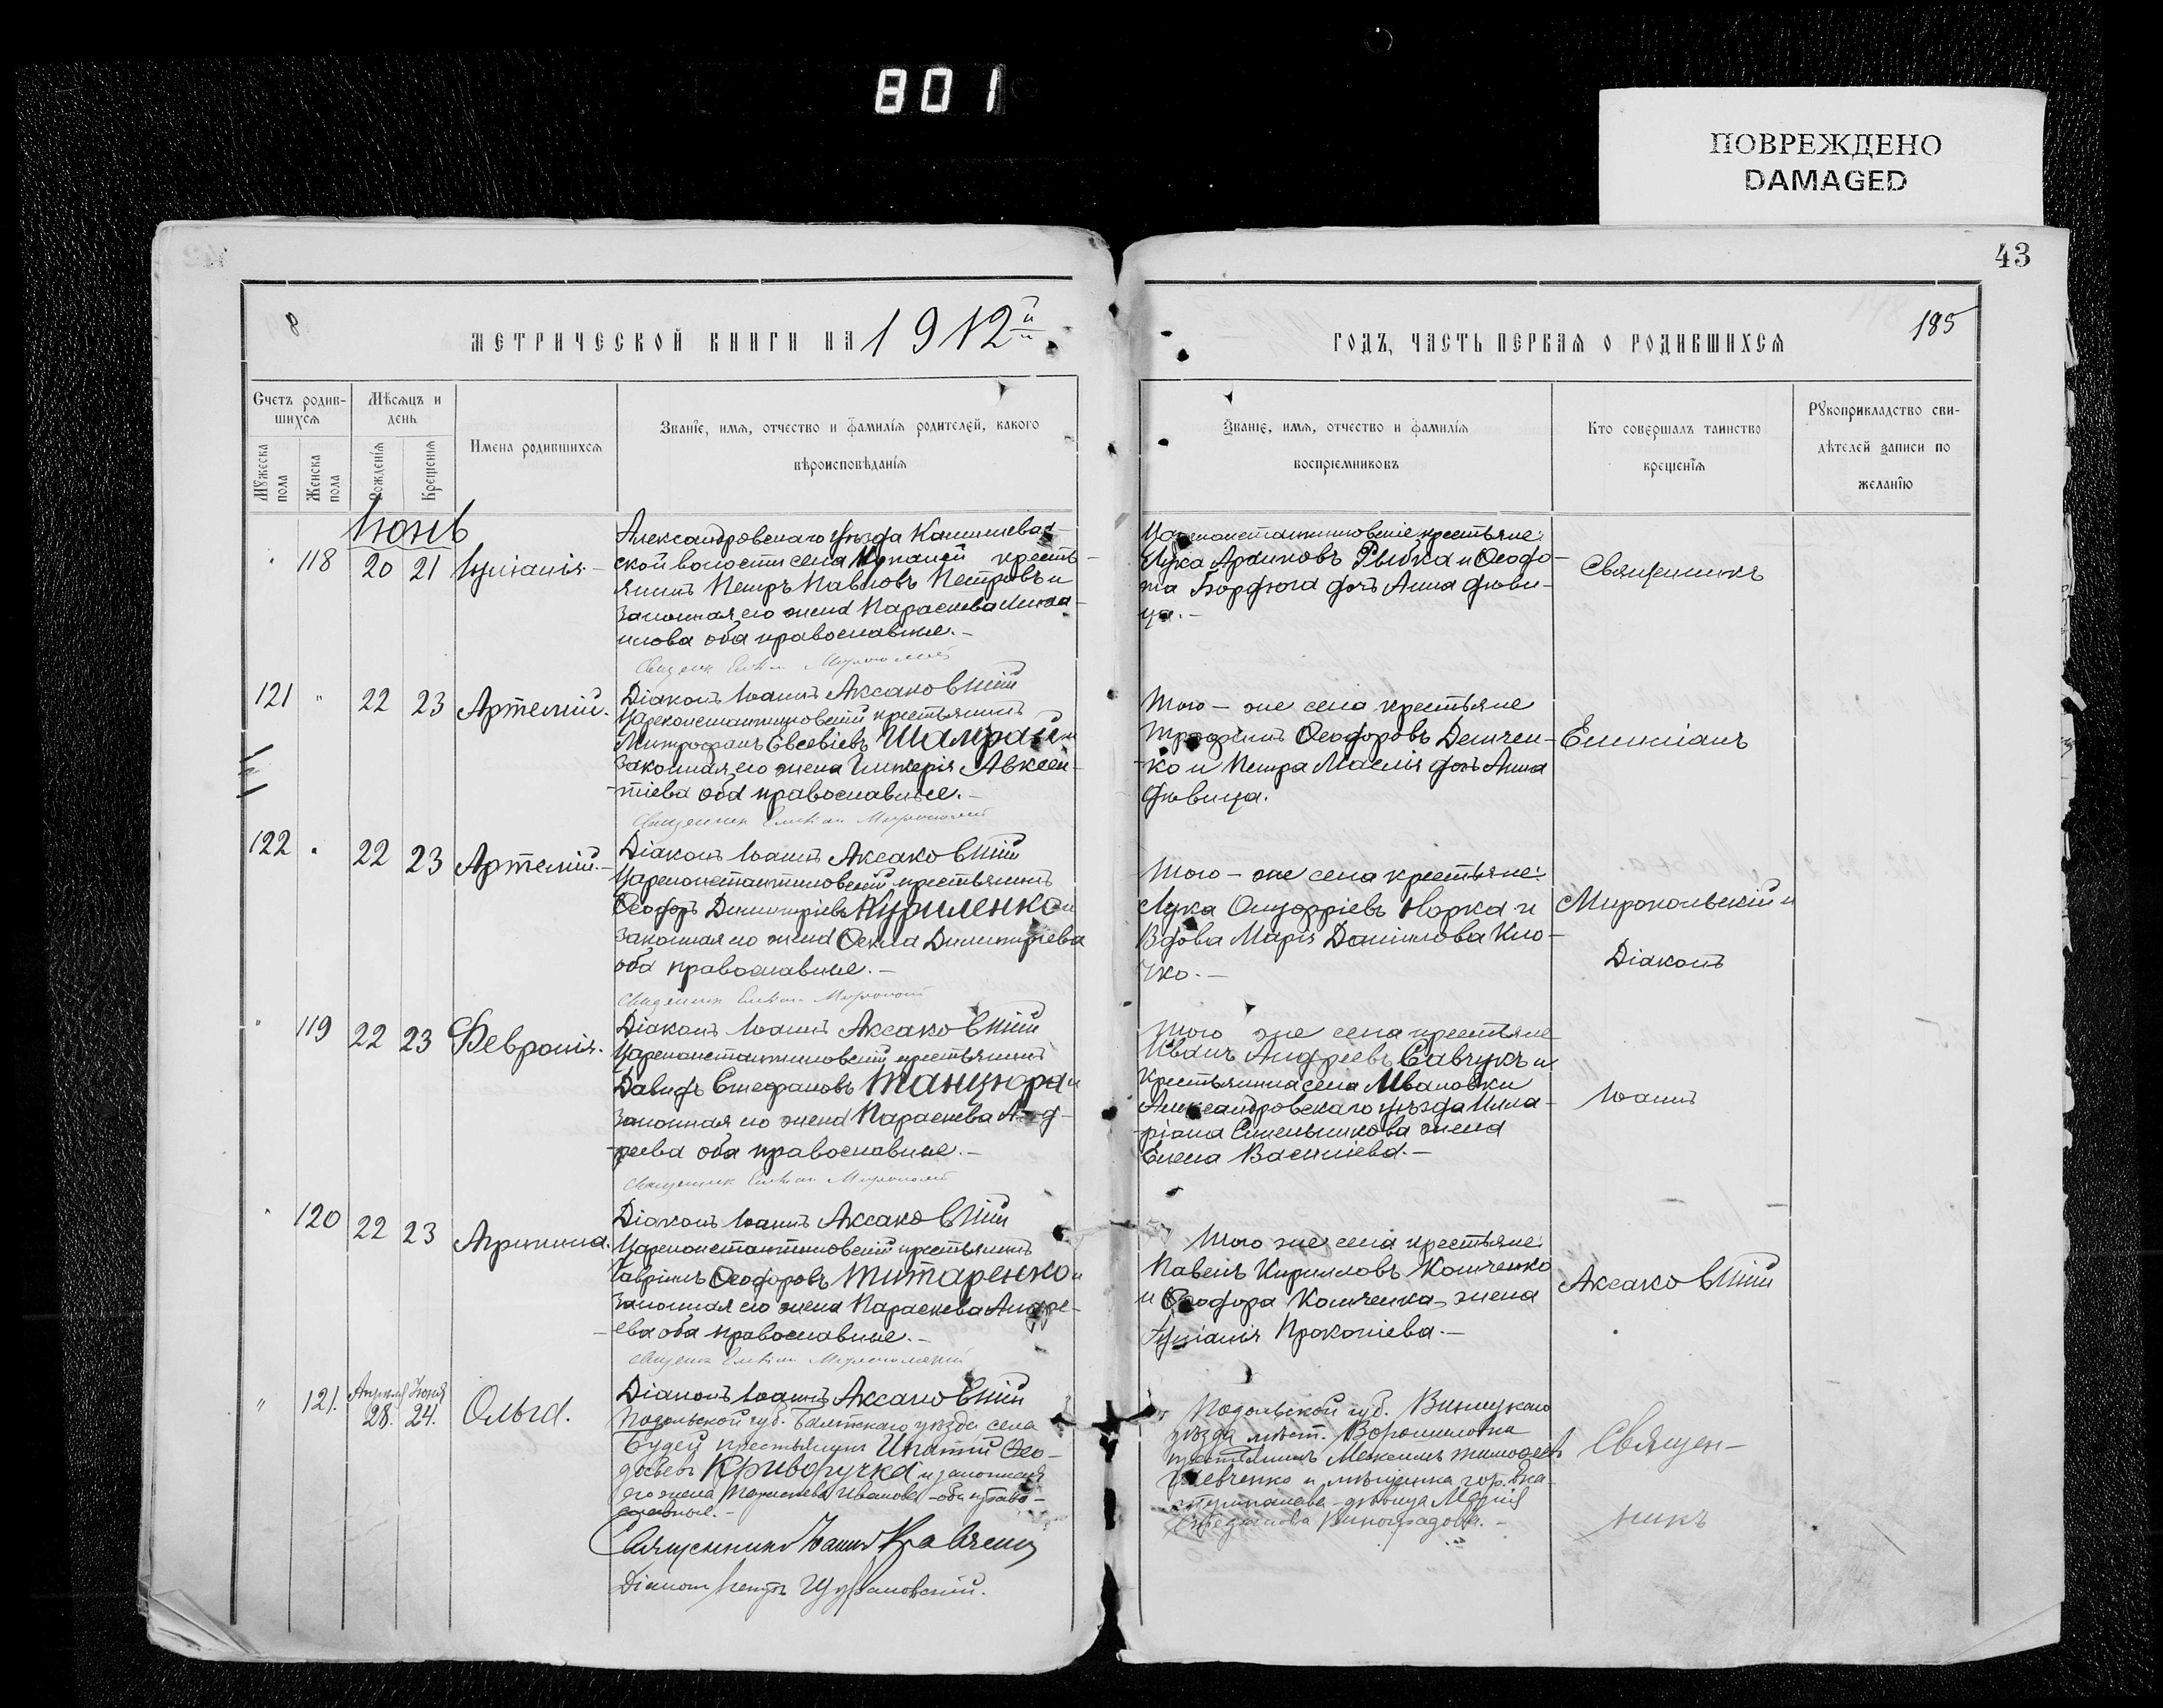 801
ПОВРЕЖДЕНО
DAMAGED
43
8
МЕТРИЧЕСКОЙ КНИГИ НА 1912й
ГОДЪ, ЧАСТЬ ПЕРВАЯ О РОДИВШИХСЯ
185
Счетъ родив-
шихся
Мужеска
пола
Женска
пола
Мѣсяцъ и
день
Рожденія
Крещенія
Имена родившихся
Званіе, имя, отчество и фамилія родителей, какого
вѣроисповѣданія
Званіе, имя, отчество и фамилія
воспріемниковъ
Кто совершалъ таинство
крещенія
Рукоприкладство сви-
дѣтелей записи по
желанію
Іюнь
118 20 21 Іуліанія
Александровскаго уѣзда
ской волости села кресть-
янинъ Петръ Павловъ Петровъ и
законная его жена Параскева
оба православные.
Цареконстантиновскіе крестьяне:
Лука Рыбка и Феодо-
та дочь Анна дѣви-
ца.
Священникъ
Діаконъ Іоаннъ Аксаковскій
121 " 22 23 Артемій.
Цареконстантиновскій крестьянинъ
Митрофанъ Евсевіевъ Шамрай и
законная его жена Гликерія Авксен-
тіева оба православные.
Того-же села крестьяне
Трофимъ Феодоровъ Демчен-
ко и Петра дочь Анна
дѣвица.
Емиліанъ
Діаконъ Іоаннъ Аксаковскій
122 " 22 23 Артемій.
Цареконстантиновскій крестьянинъ
Феодоръ Димитріевъ Куриленко и
законная его жена Фекла Димитріева
оба православные.
Того-же села крестьяне:
Лука Норка и
Вдова Марія Даніилова Кло-
чко.
Миропольскій и
Діаконъ
Діаконъ Іоаннъ Аксаковскій
" 119 22 23 Февронія.
Цареконстантиновскій крестьянинъ
Давидъ Стефановъ Танцюра и
законная его жена Параскева Анд-
реева оба православные.
Того же села крестьяне
Иванъ Андреевъ Савчукъ и
Крестьянина села Ивановки
Александровскаго уѣзда Ила-
ріона Синельникова жена
Елена Василіева.
Іоаннъ
Діаконъ Іоаннъ Аксаковскій
" 120 22 23 Агрипина.
Цареконстантиновскій крестьянинъ
Гавріилъ Феодоровъ Титаренко и
законная его жена Параскева Андре-
ева оба православные.
Того же села крестьяне:
Павелъ Кирилловъ Компченко
и Феодора жена
Іуліанія Прокопіева.
Аксаковскій
Діаконъ Іоаннъ Аксаковскій
" 121. Апрѣля 28. Іюня 24. Ольга.
Подольской губ. Балтскаго уѣзда села
Будей крестьянинъ Игнатій Фео-
досіевъ Криворучка и законная
его жена Параскева Иванова - оба право-
славные.
Подольской губ. Винницкаго
уѣзда мѣст. Вороновица
крестьянинъ Максимъ Тимофеевъ
Шевченко и мѣщанка гор. Ека-
теринослава - дѣвица Марія
Стефанова Виноградова.
Священ-
никъ
Священникъ Іоаннъ Кравченко
Діаконъ Петръ